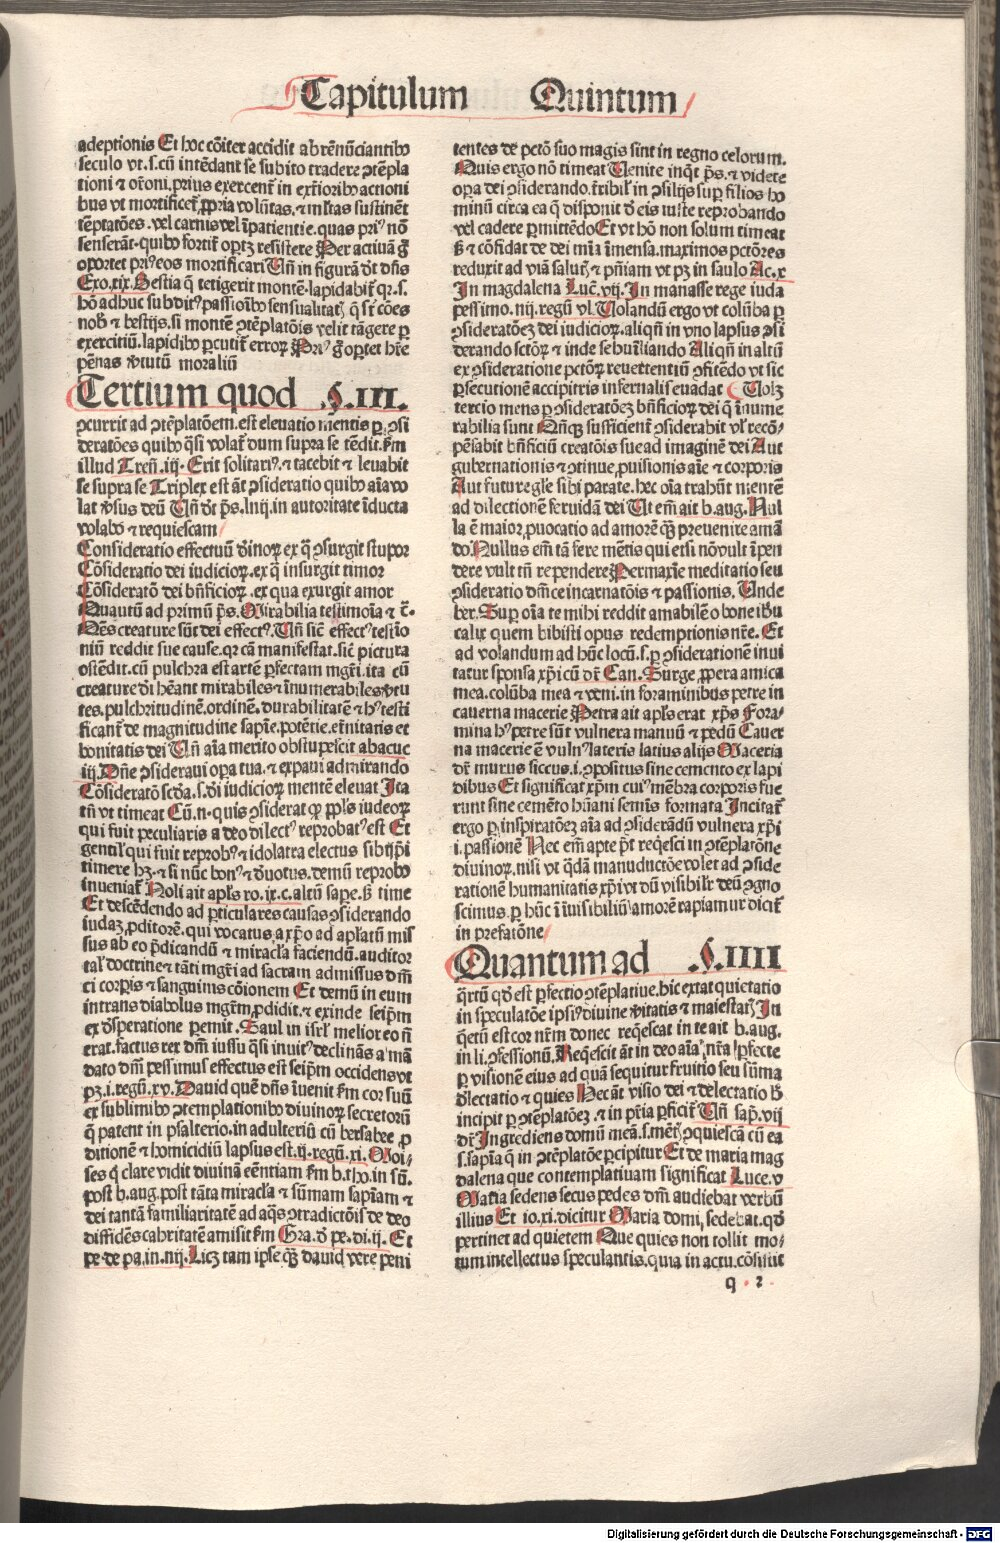 Capitulum Quintum
adeptionis Et hoc cōiter accidit abrēnūciantibꝰ
seculo vt.s.cū intēdant se subito tradere ꝯtēpla
tioni ⁊ or̄oni.prius exercent̄ in exterioribꝰ actioni
bus vt mortificet̄ ꝓpria volūtas.⁊ ml̄tas sustinēt
tēptatōes.vel carnis vel īpatientie.quas priꝰ nō
senserāt.quibꝰ fortit̄ oportꝫ resistere Per actiuā g̊
oportet priꝰ eos mortificari Un̄ in figurā dr̄ dn̄s
Exo.xix.Bestia q̄ tetigerit montē.lapidabit̄ qꝛ.s.
hō adhuc subditꝰ passiōibꝰ sensualitatꝭ q̄ st̄ cōes
nob̄ ⁊ bestijs.si montē ꝯtēplatōis velit tāgere ꝑ
exercitiū.lapidibꝰ ꝑcutit̄ erroꝝ Priꝰ g̊ oportet hr̄e
pēnas v̓tutū moraliū
Tertium quod §.III.
ꝯcurrit ad ꝯtēplatōem.est eleuatio mentis ꝑ ꝯsi
deratōes quibꝰ q̄si volat̄ dum supra se tēdit.km̄
illud Tren̄.iij.Erit solitariꝰ.⁊ tacebit ⁊ leuabit
se supra se Triplex est āt ꝯsideratio quibꝰ aīa vo
lat v̓sus deū Un̄ dr̄ ps̄.lnij.in autoritate īducta
volabo ⁊ requiescam
Consideratio effectuū diuinoꝝ ex q̄ ꝯsurgit stupor
Cōsideratio dei iudicioꝝ.ex q̄ insurgit timor
Cōsideratō dei bn̄ficioꝝ.ex qua exurgit amor
Quantū ad primū ps̄.Mirabilia testimoīa ⁊ c̄.
Oēs creature sūt dei effectꝰ.Un̄ sic̄ effectꝰ testio
niū reddit sue cause.qꝛ cā manifestat.sic̄ pictura
ostēdit.cū pulchra est artē ꝑfectam mgr̄i.ita cū
creature di hēant mirabiles ⁊ īnumerabiles v̓tu
tes.pulchritudinē.ordinē.durabilitatē ⁊ hꝰ testi
ficant̄ de magnitudine sapīe.potētie.et̄nitatis et
bonitatis dei Un̄ aīa merito obstupescit abacuc
iij.Dn̄e ꝯsideraui opa tua.⁊ expaui admirando
Cōsideratō scd̄a.s.di iudicioꝝ mentē eleuat Ita
tn̄ vt timeat Cū.n.quis ꝯsiderat qꝙ ppl̄s iudeoꝝ
qui fuit peculiaris a deo dilectꝰ reprobatꝰ est Et
gentil̄ qui fuit reprobꝰ ⁊ idolatra electus sibi ip̄i
timere hꝫ.⁊ si nūc bonꝰ ⁊ deuotus.demū reprobꝰ
inueniat̄ Noli ait apl̄s ro.ix.c.altū sape.s̄ time
Et descēdendo ad ꝑticulares causas ꝯsiderando
iudaꝫ ꝓditorē.qui vocatus a xp̄o ad apl̄atū mis
sus ab eo p̄dicandū ⁊ miracl̄a faciendū.auditor
tal̄ doctrine ⁊ tāti mgr̄i ad sacram admissus dn̄i
ci corpis ⁊ sanguinis cōionem Et demū in eum
intrans diabolus mgr̄m ꝓdidit.⁊ exinde seip̄m
ex desperatione ꝑemit.Saul in isrl̄ melior eo n̄
erat.factus rex dn̄i iussu q̄si inuitꝰ declināns a mā
dato dn̄i pessimus effectus est seip̄m occidens vt
pꝫ.i.regū.xv.Dauid quē dn̄s īuenit km̄ cor suū
ex sublimibꝰ ꝯtemplationibꝰ diuinoꝝ secretorū
q̄ patent in psalterio.in adulteriū cū bersabee ꝓ
ditionē ⁊ homicidiū lapsus est.ij.regū.xi.Moi⸗
ses q̄ clare vidit diuinā eēntiam km̄ b.tho.in sū.
post b.aug.post tāta miracl̄a ⁊ sūmam sapīam ⁊
dei tantā familiaritatē ad aq̄s ꝯtradictōis de deo
diffidēs cabritatē amisit km̄ Gra.d̓ pe.di.ij.Et
pe.de pa.in.nij.Licꝫ tam ipse qꝫ̄ dauid vere peni
tentes de pctō suo magis sint in regno celorum.
Quis ergo nō timeat Uenite inq̄t ps̄.⁊ videte
opa dei ꝯsiderando.t̄ribil̄ in ꝯsilijs suꝑ filios ho
minū circa ea q̄ disponit d̓ eis iuste reprobando
vel cadere ꝑmittēdo Et vt hō non solum timeat
s̄ ⁊ cōfidat de dei mīa īmensa.maximos pctōres
reduxit ad viā salutꝭ ⁊ pn̄iam vt pꝫ in saulo Ac.x
In magdalena Luc̄.vij.In manasse rege iuda
pessimo.nij.regū vl.Uolandū ergo vt colūba ꝑ
ꝯsideratōeꝫ dei iudicioꝝ.aliqn̄ in vno lapsus ꝯsi
derando sctōꝝ ⁊ inde se humiliando Aliqn̄ in altū
ex ꝯsideratione pctōꝝ reuertentiū ꝯfitēdo vt sic
ꝑsecutionē accipitris infernalis euadat Uolꝫ
tercio mens ꝑ ꝯsideratōeꝫ bn̄ficioꝝ dei q̄ īnume
rabilia sunt Qn̄cꝫ sufficient̄ ꝯsiderabit vl̄ recō⸗
pēsabit bn̄ficiū creatōis sue ad imaginē dei Aut
gubernationis ⁊ ꝯtinue ꝓuisionis aīe ⁊ corporis
Aut future gl̄e sibi parate.hec oīa trahūt mentē
ad dilectionē feruidā dei Ut em̄ ait b.aug.Nul
la ē maior ꝓuocatio ad amorē qꝫ̄ preuenire amā
do.Nullus em̄ tā fere mētis qui etsi nō vult īpen
dere vult tn̄ rependere Permaxīe meditatio seu
ꝯsideratio dn̄ice incarnatōis ⁊ passionis.Unde
ber.Sup oīa te mihi reddit amabilē o bone ihū
calix quem bibisti opus redemptionis nr̄e.Et
ad volandum ad hūc locū.s.ꝑ ꝯsiderationē inui
tatur sponsa xp̄i cū dr̄ Can.Surge ꝓpera amica
mea.colūba mea ⁊ veni.in foraminibus petre in
cauerna macerie Petra ait apl̄s erat xp̄s Fora⸗
mina hꝰ petre sūt vulnera manuū ⁊ pedū Cauer
na macerie ē vulnꝰ lateris latius alijs Maceria
dr̄ murus siccus.i.ꝯpositus sine cemento ex lapi
dibus Et significat xp̄m cuiꝰ mēbra corporis fue
runt sine cemēto hūani semīs formata Incitat̄
ergo ꝑ inspiratōeꝫ aīa ad ꝯsiderādū vulnera xp̄i
i.passionē Nec em̄ apte pt̄ reqēsci in ꝯtēplatōne
diuinoꝝ.nisi vt q̄dā manuductōe volet ad ꝯside
rationē humanitatis xp̄i vt dū visibilr̄ deū ꝯgno
scimus.ꝑ hūc ī īuisibiliū amorē rapiamur dicit̄
in prefatōne
Quantum ad §.IIII
q̄rtū qd̄ est ꝑfectio ꝯtēplatiue.hic extat quietatio
in speculatōe ipsiꝰ diuine v̓itatis ⁊ maiestatꝭ In
q̄etū est cor nr̄m donec reqēscat in te ait b.aug.
in li.ꝯfessionū.Reqēscit āt in deo aīa nr̄a ꝑfecte
ꝑ visionē eius ad quā sequitur fruitio seu sūma
d̓lectatio ⁊ quies Nec āt visio dei ⁊ delectatio h̄
incipit ꝑ ꝯtēplatōeꝫ.⁊ in pr̄ia ꝑficit̄ Un̄ sap̄.vij
dr̄ Ingrediens domū meā.s.mētꝭ ꝯquiescā cū ea
s.sapīa q̄ in ꝯtēplatōe ꝑcipitur Et de maria mag
dalena que contemplatiuam significat Luce.v
Maria sedens secus pedes dn̄i audiebat verbū
illius Et io.xi.dicitur Maria domi,sedebat.qd̓
pertinet ad quietem Que quies non tollit mo⸗
tum intellectus speculantis.quia in actu.cōsistit
q 2
Digitalisierung gefördert durch die Deutsche Forschungsgemeinschaft - DFG